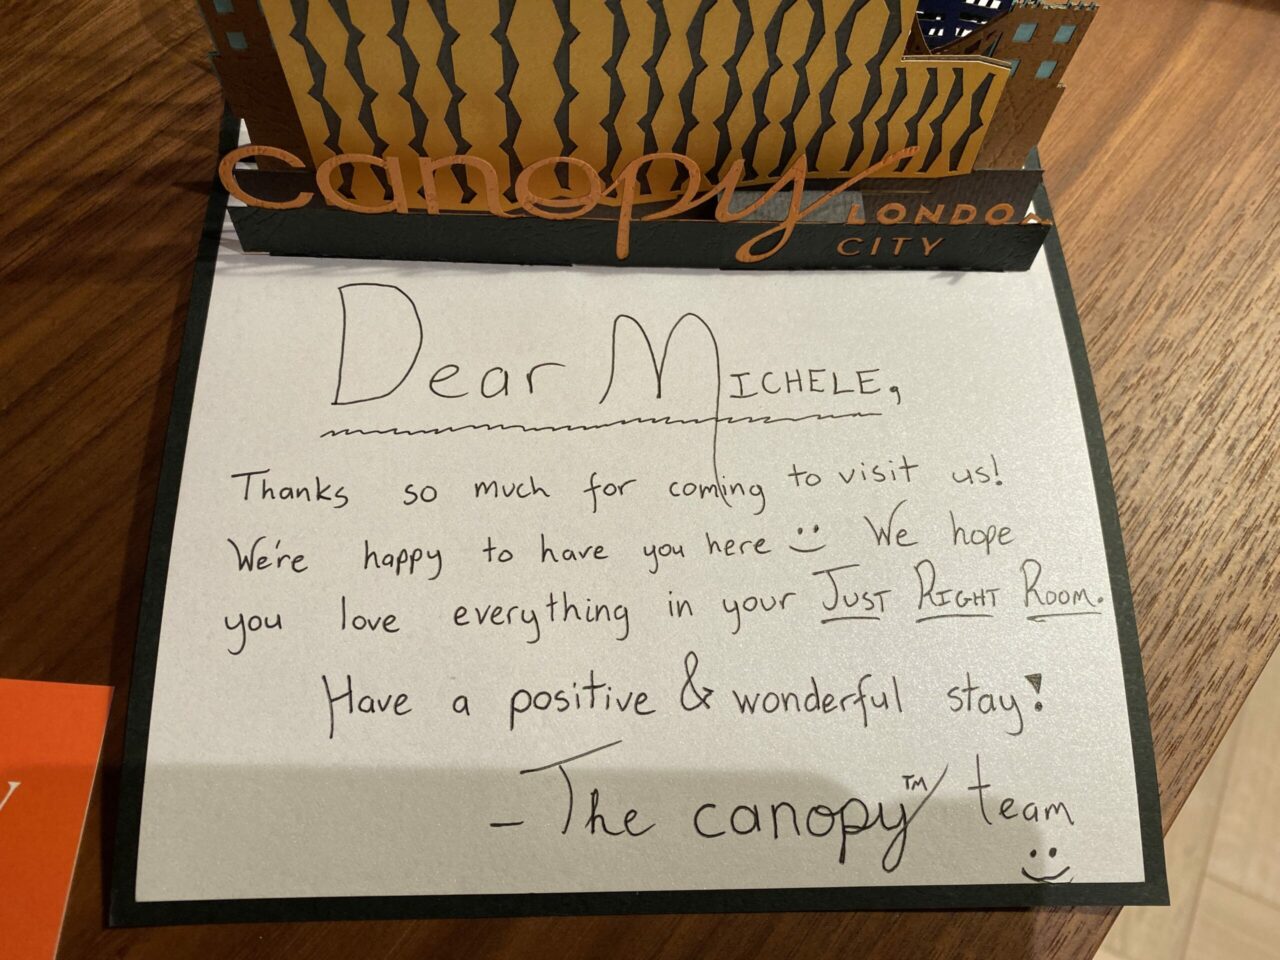 canopy
LONDON
CITY
Dear MICHELE,
Thanks so much for coming to visit us!
We're happy to have you here :) We hope
you love everything in your JUST RIGHT ROOM.
Have a positive & wonderful stay!
- The canopy™ team
:)